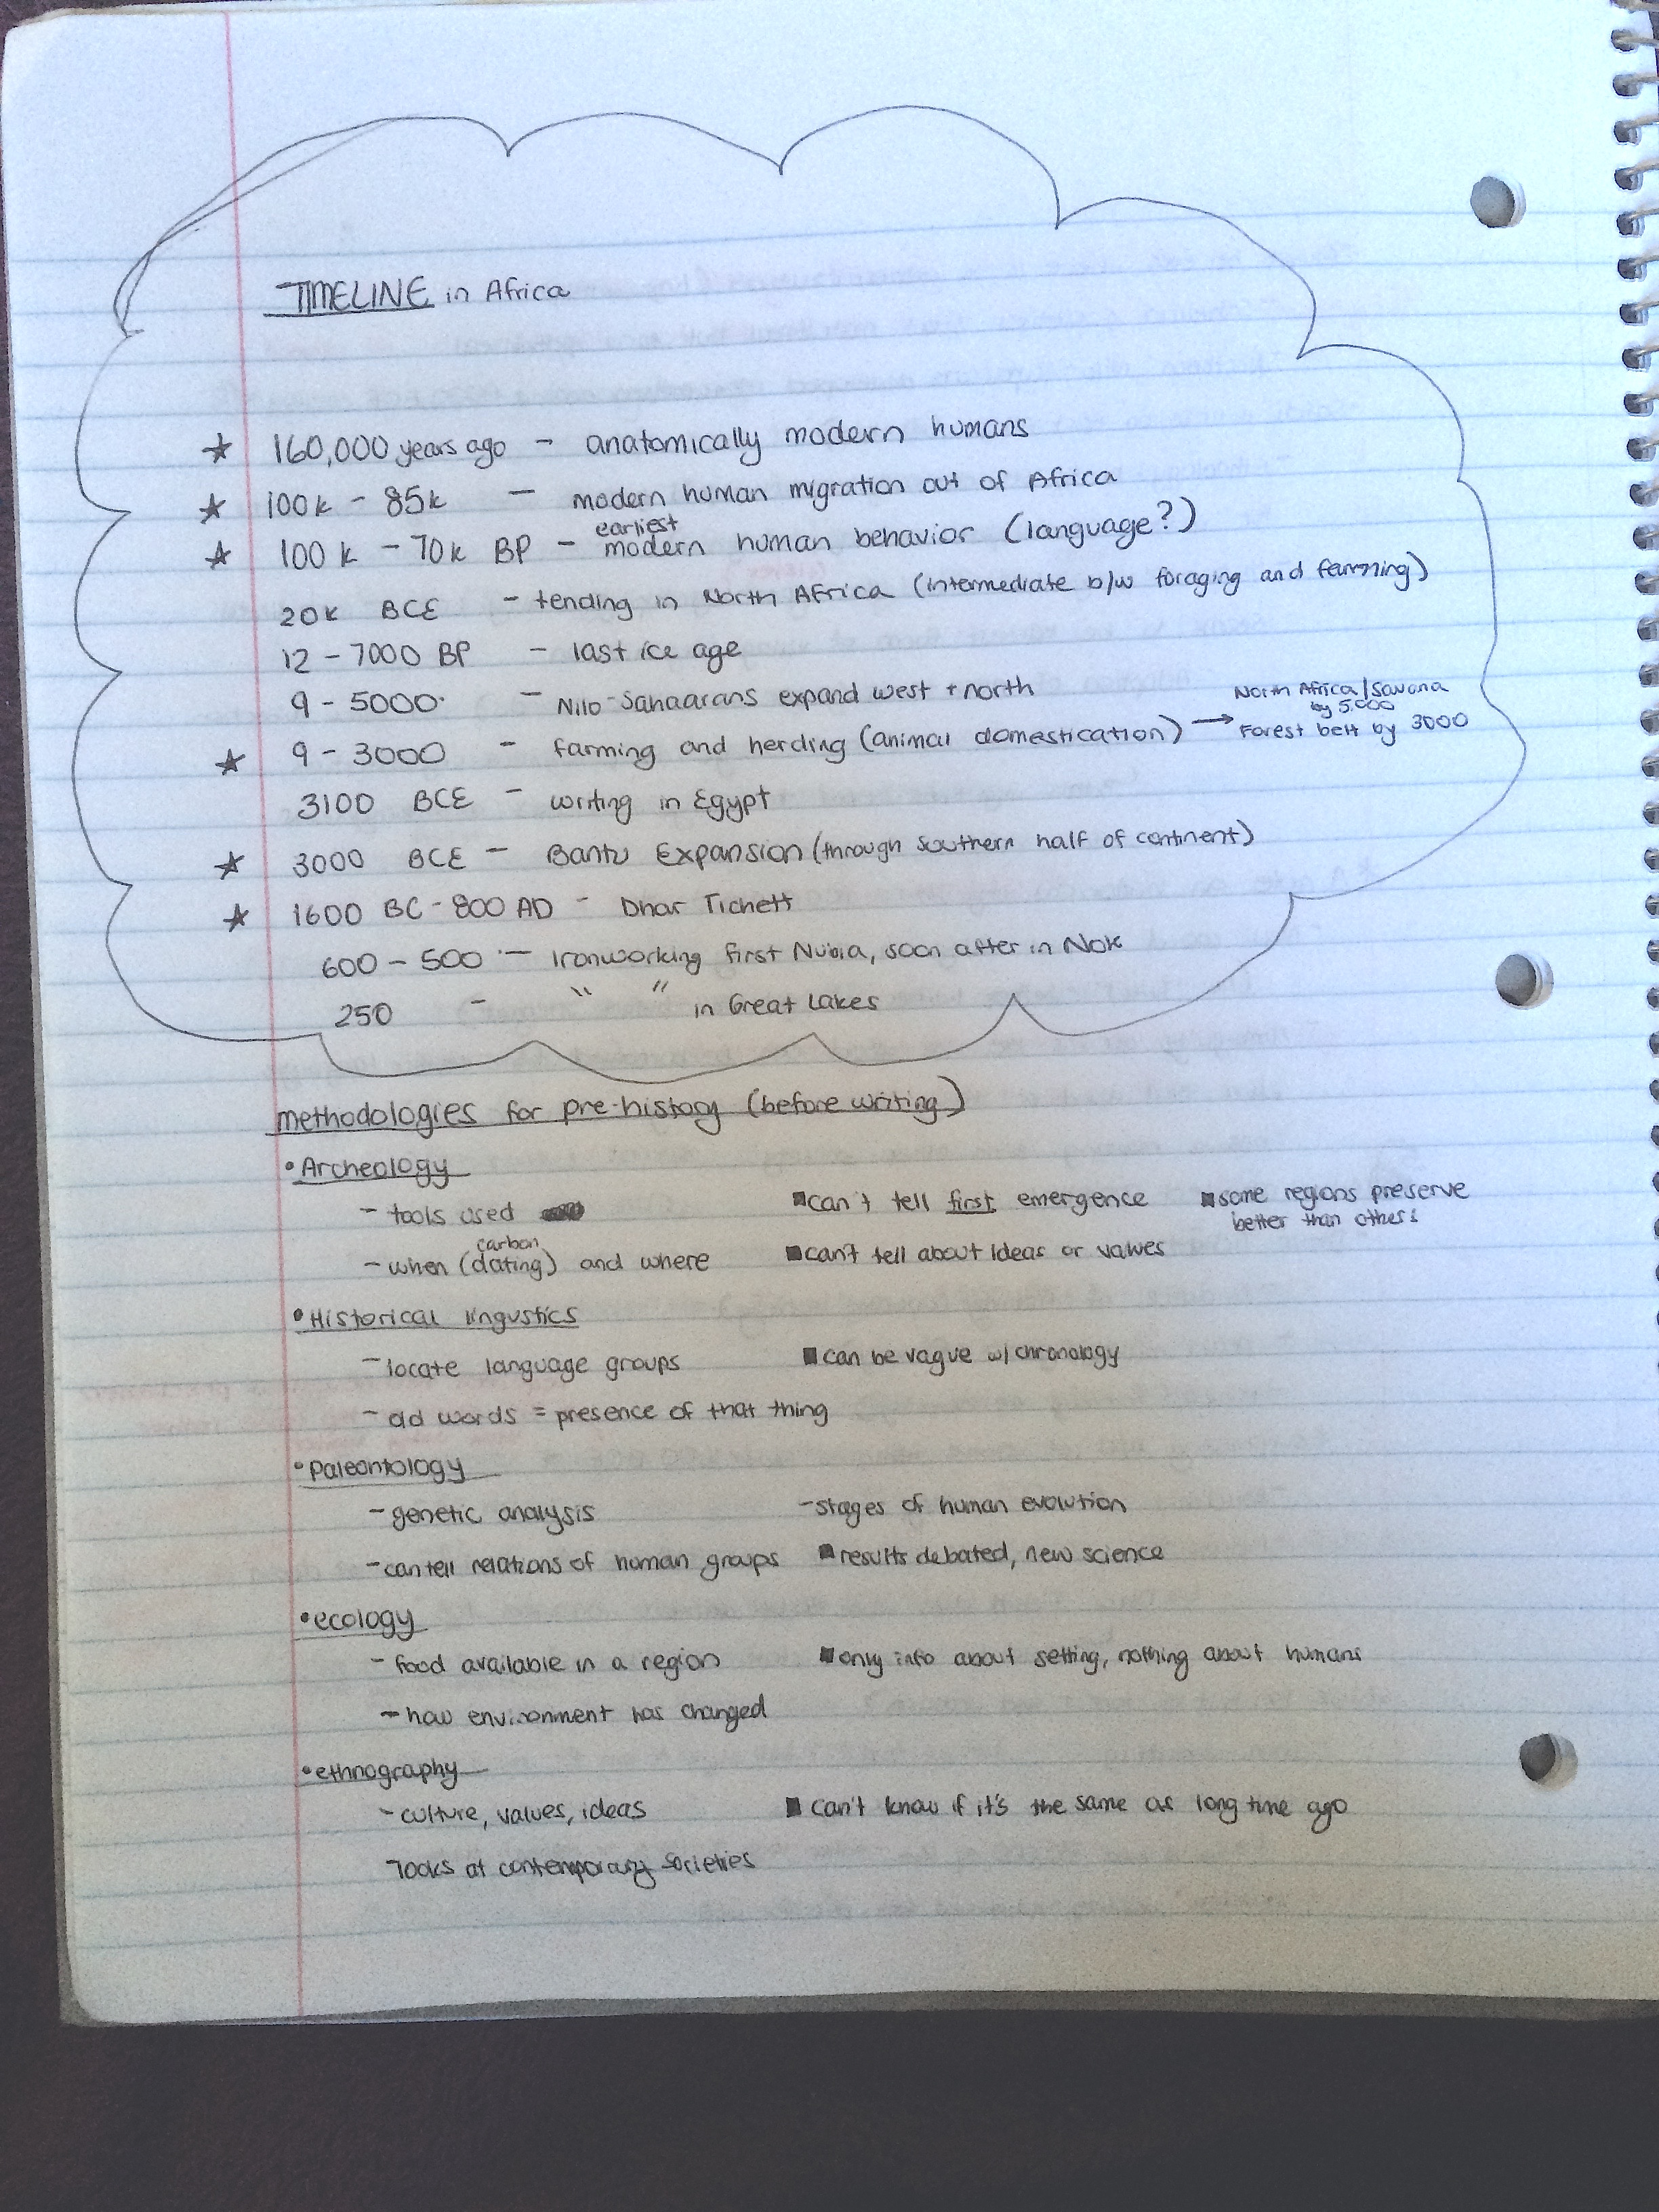 TIMELINE in Africa
★ 160,000 years ago - anatomically modern humans
★ 100k - 85k - modern human migration out of Africa
earliest
★ 100k - 70k BP - modern human behavior (language?)
20k BCE - tending in North Africa (intermediate b/w foraging and farming)
12 - 7000 BP - last ice age
9 - 5000 - Nilo-Sahaarans expand west + north
North Africa/Savana
by 5,000
★ 9 - 3000 - farming and herding (animal domestication) → Forest belt by 3000
3100 BCE - writing in Egypt
★ 3000 BCE - Bantu Expansion (through Southern half of continent)
★ 1600 BC - 800 AD - Dhar Tichett
600 - 500 - Ironworking first Nubia, soon after in Nok
250 - " " in Great Lakes
methodologies for pre-history (before writing)
• Archeology
- tools used ■ can't tell first emergence ■ some regions preserve
better than others
carbon
- when (dating) and where ■ can't tell about ideas or values
• Historical lingustics
- locate language groups ■ can be vague w/ chronology
- old words = presence of that thing
• Paleontology
- genetic analysis - stages of human evolution
- can tell relations of human groups ■ results debated, new science
• ecology
- food available in a region ■ only info about setting, nothing about humans
- how environment has changed
• ethnography
- culture, values, ideas ■ can't know if it's the same as long time ago
looks at contemporary societies